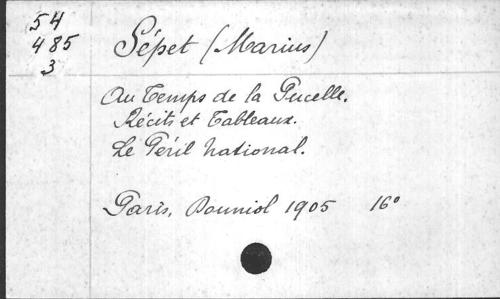 54
485
3
Sépet (Marius)
Au Temps de la Pucelle.
Récits et Tableaux.
Le Péril national.
Paris, Douniol 1905 16°